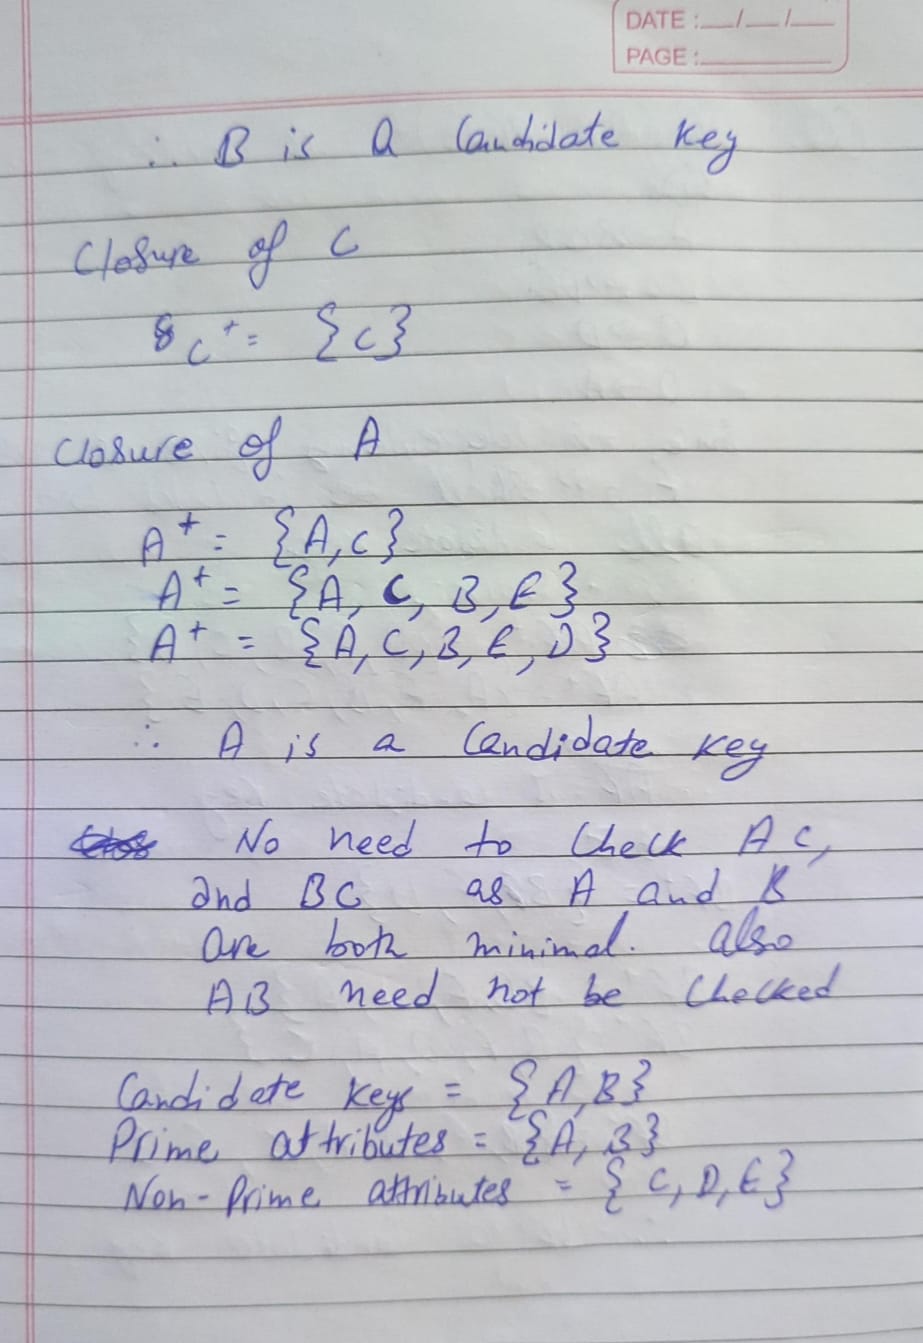 DATE :__/__/__
PAGE :
∴ B is a Candidate Key
Closure of C
C⁺ = {C}
Closure of A
A⁺ = {A,C}
A⁺ = {A, C, B, E}
A⁺ = {A, C, B, E, D}
∴ A is a Candidate Key
No need to Check AC,
and BC as A and B
are both minimal. also
AB need not be Checked
Candidate Keys = {A,B}
Prime attributes = {A, B}
Non-Prime attributes = {C, D, E}